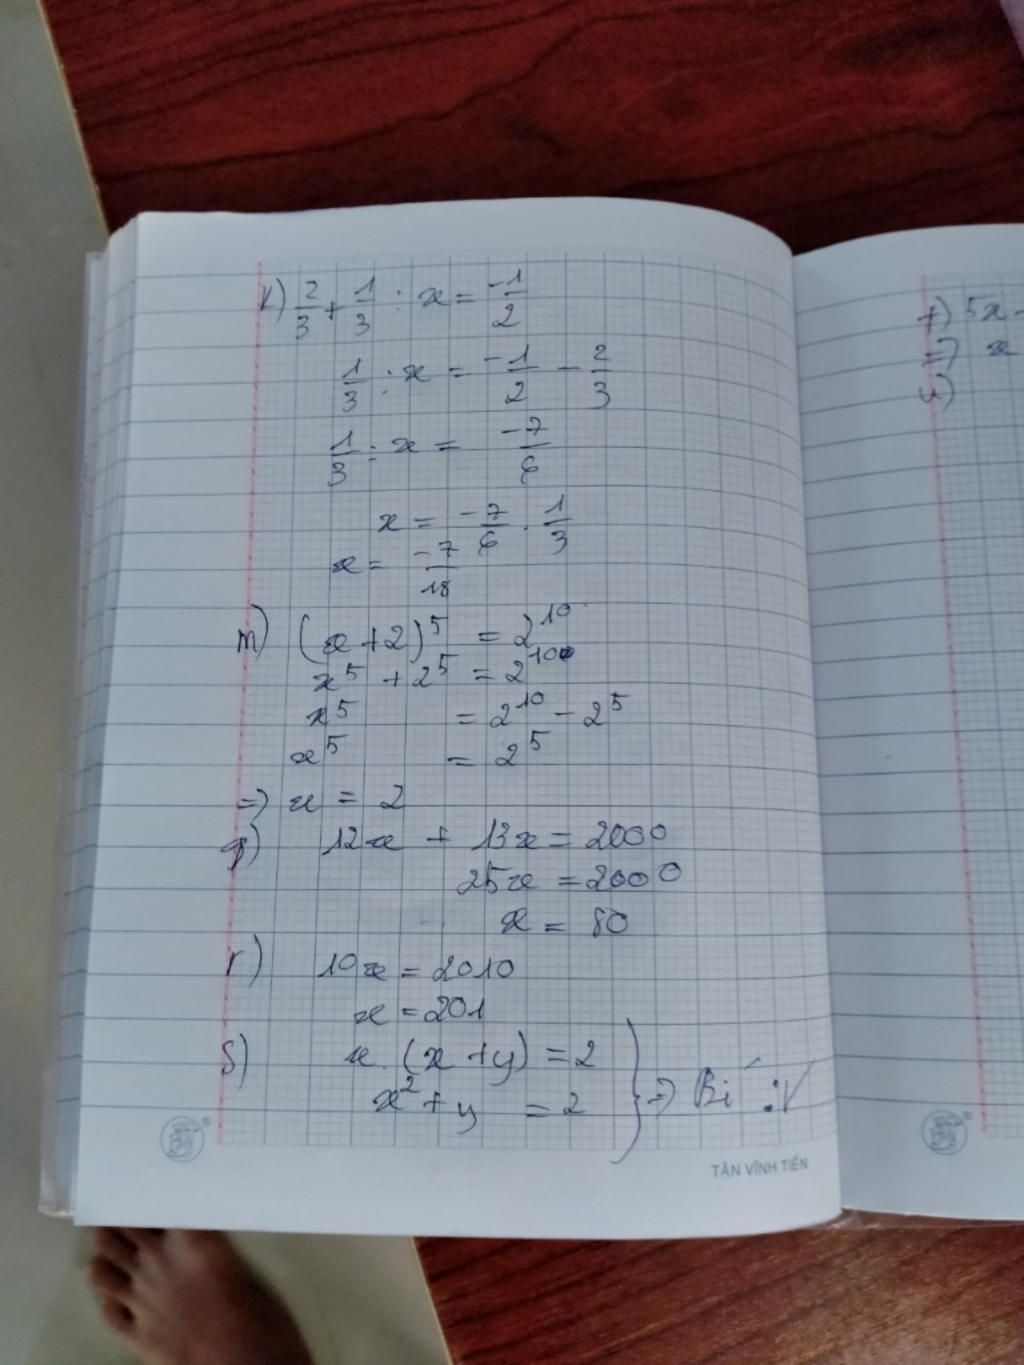 k) 2/3 + 1/3 : x = -1/2
1/3 : x = -1/2 - 2/3
1/3 : x = -7/6
x = -7/6 . 1/3
x = -7/18
m) (x + 2)^5 = 2^10
x^5 + 2^5 = 2^10
x^5 = 2^10 - 2^5
x^5 = 2^5
=> x = 2
q) 12x + 13x = 2000
25x = 2000
x = 80
r) 10x = 2010
x = 201
s) x. (x + y) = 2
x^2 + y = 2 } => Bí :V
TÂN VĨNH TIẾN
t) 5x -
=> x
u)